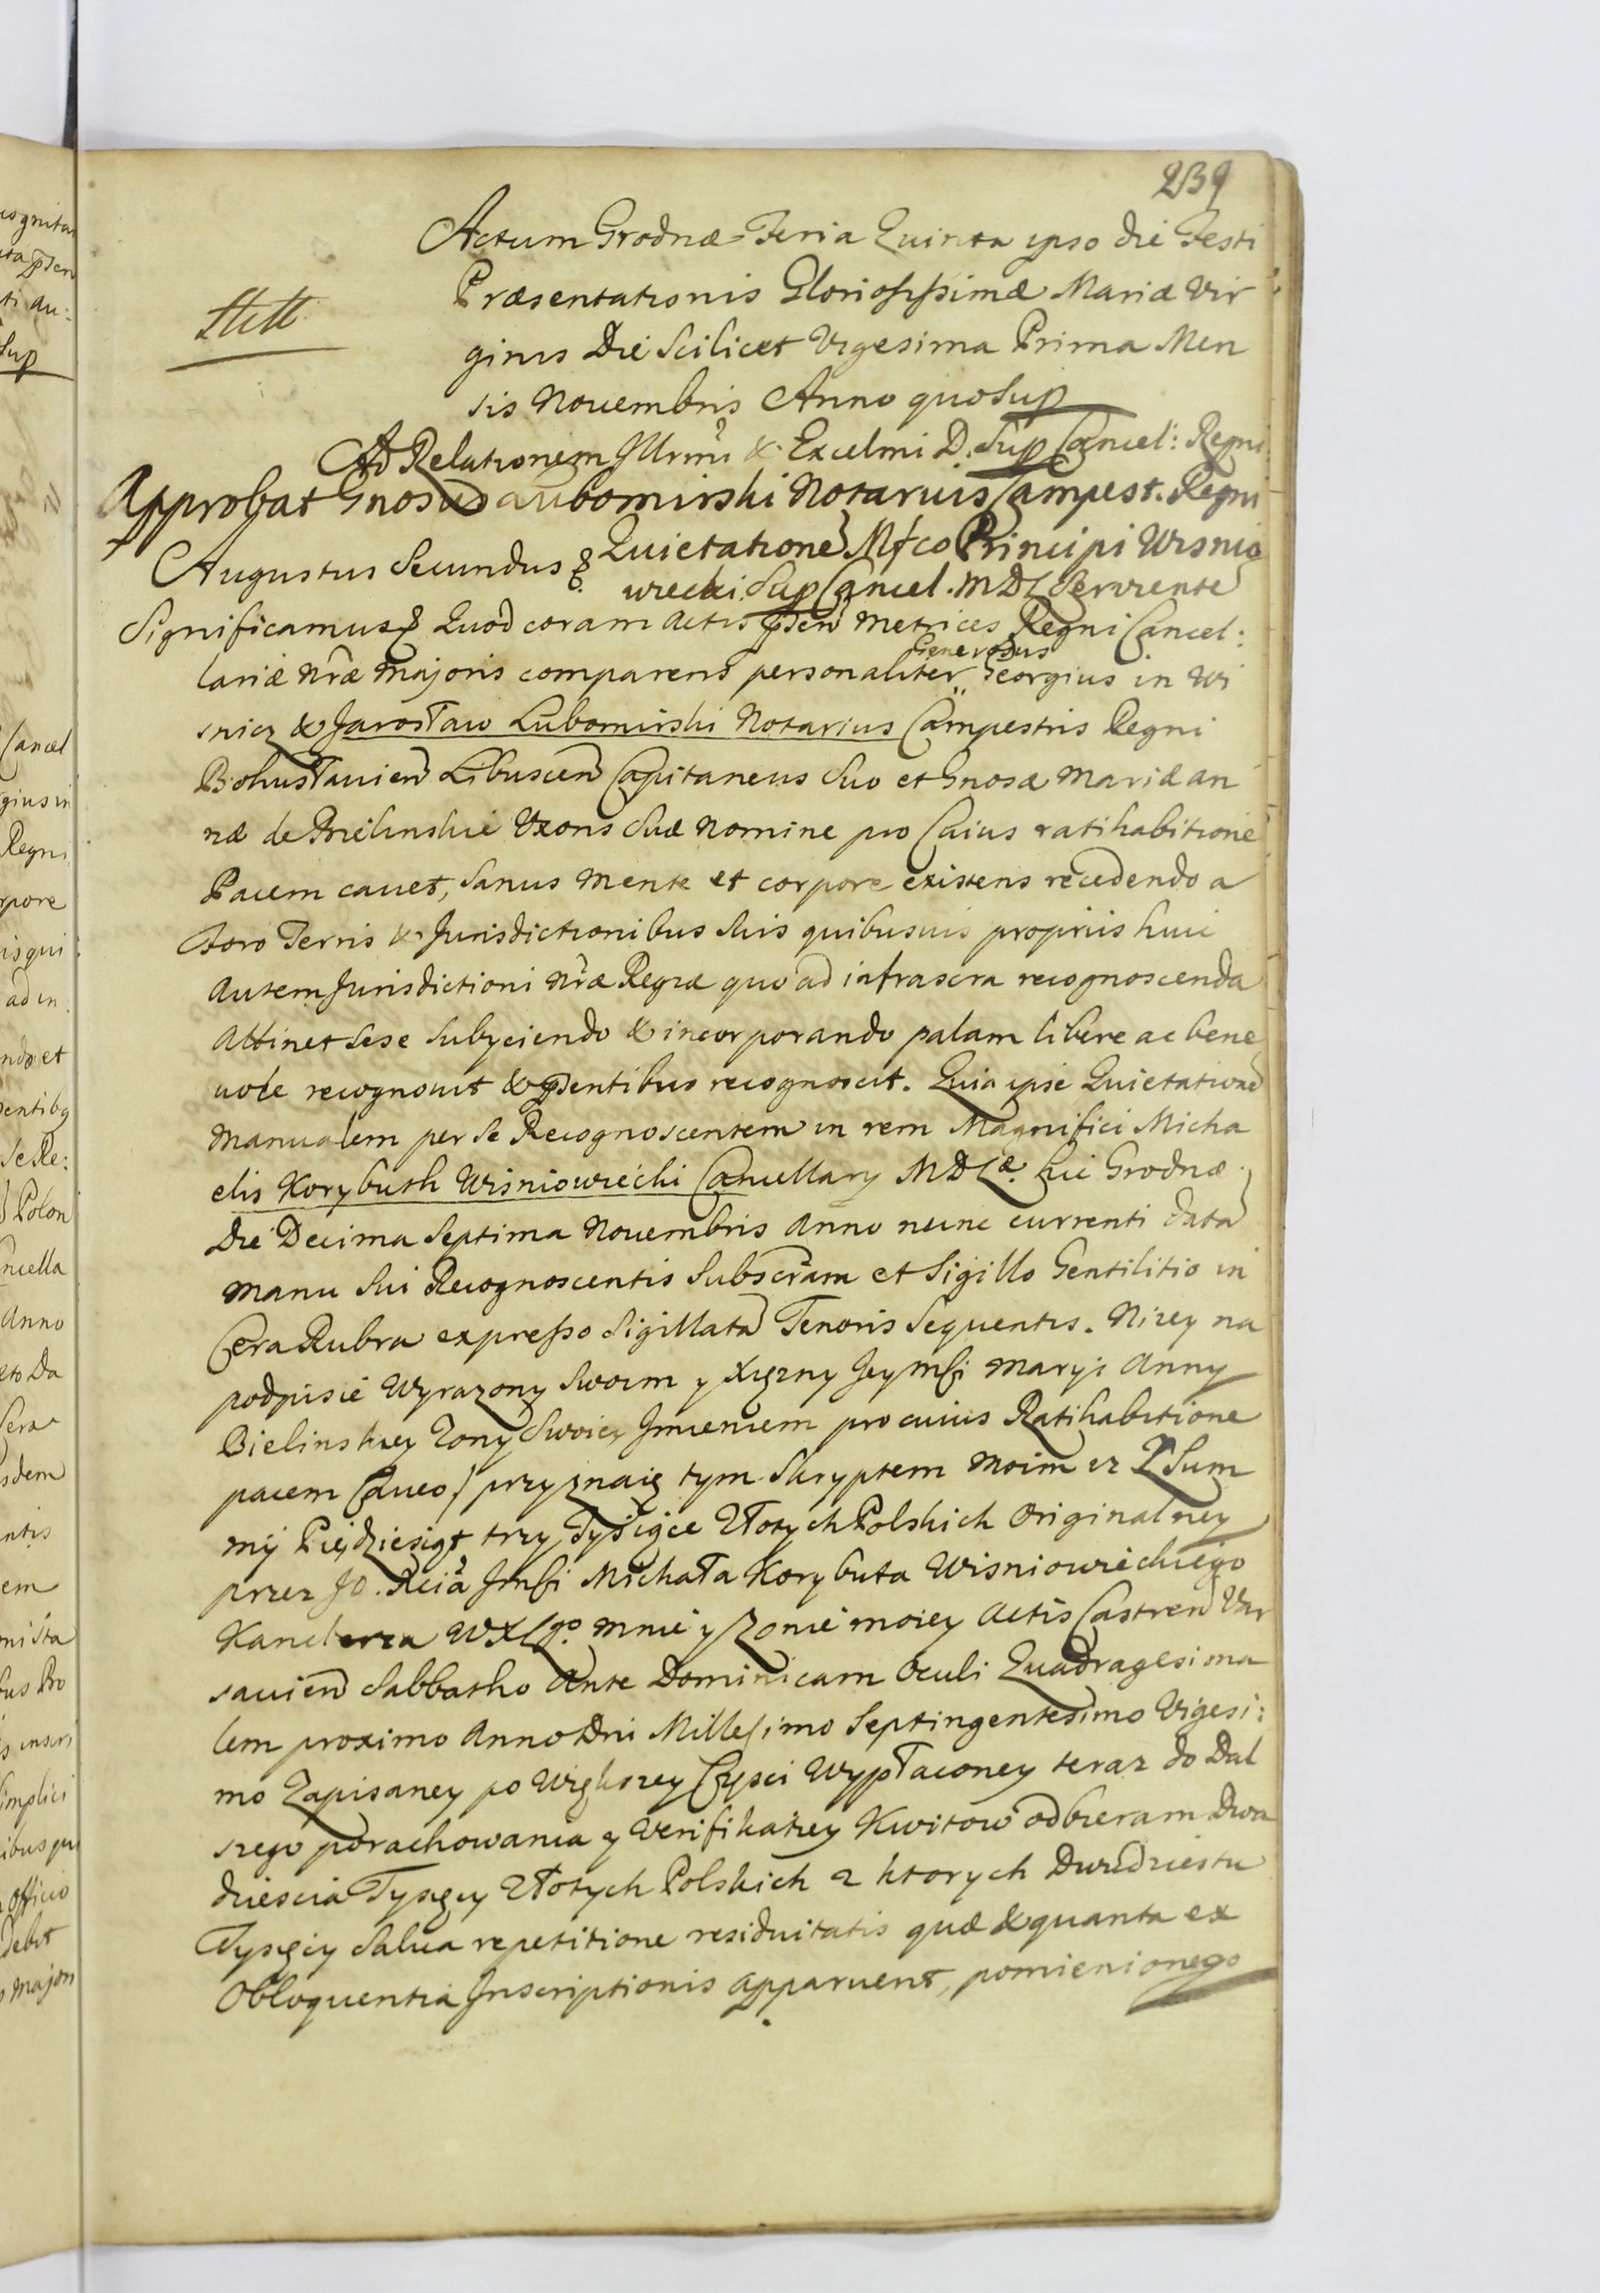 239
Actum Grodnæ Feria Quinta ipso die Festi
Præsentationis Gloriosissimæ Mariæ Vir
ginis Die Scilicet Vigesima Prima Men
sis Novembris Anno quo Sup
Ad Relationem Illrmi & Excelmi D. Sup Cancel: Regni
Approbat Gnosus Lubomirski Notarius Campest. Regni
Augustus Secundus Quietatione Mfco Principi Wisnio
wiecki Sup Cancel. MDL Serviente
Significamus Quod coram Actis psen Metrices Regni Cancel:
Generosus
lariæ Nræ Majoris comparens personaliter Georgius in Wi
snicz & Jarosław Lubomirski Notarius Campestris Regni
Bohusłavien Libuscen Capitaneus Suo et Gnosæ Mariæ An
næ de Bielinskie Uxoris Suæ Nomine pro Cuius ratihabitione
Pacem cavet, Sanus Mente et corpore existens recedendo a
Foro Terris & Jurisdictionibus Suis quibusuis propriis huic
Autem Jurisdictioni Nræ Regiæ quo ad infrascra recognoscenda
Attinet Sese Subyciendo & incorporando palam libere ac bene
uole recognouit & psentibus recognoscit. Quia ipse Quietatione
Manualem per Se Recognoscentem in rem Magnifici Micha
elis Korybuth Wisniowiecki Cancellary MDLæ. hic Grodnæ
Die Decima Septima Novembris Anno nunc currenti data
Manu Sui Recognoscentis Subscram et Sigillo Gentilitio in
Cera Rubra expresso Sigillata Tenoris Sequentis. Nizey na
podpisie Wyrazony Swoim y Xięzny Jeymsi Maryi Anny
Bielinskiey Zony Swoiey Imieniem pro cuius Ratihabitione
pacem Caveo) przyznaię tym Skryptem Moim iz z Sum
my Pięćdziesiąt trzy Tysiące Złotych Polskich Originalney
przez JO. Xcia Jmsi Michała Korybuta Wisniowieckiego
Kanclerza WXLgo. Mnie y Zonie moiey Actis Castren Var
savien Sabbatho Ante Dominicam Oculi Quadragesima
lem proximo Anno Dni Millesimo Septingentesimo Vigesi:
mo Zapisaney po Większey Częsci Wypłaconey teraz do Dal
szego porachowania y Verifikatiey Kwitow odbieram Dwa
dziescia Tysięcy Złotych Polskich z ktorych Dwudziestu
Tysięcy Salva repetitione residuitatis quæ & quanta ex
Obloquentia Inscriptionis apparuerit, pomienionego